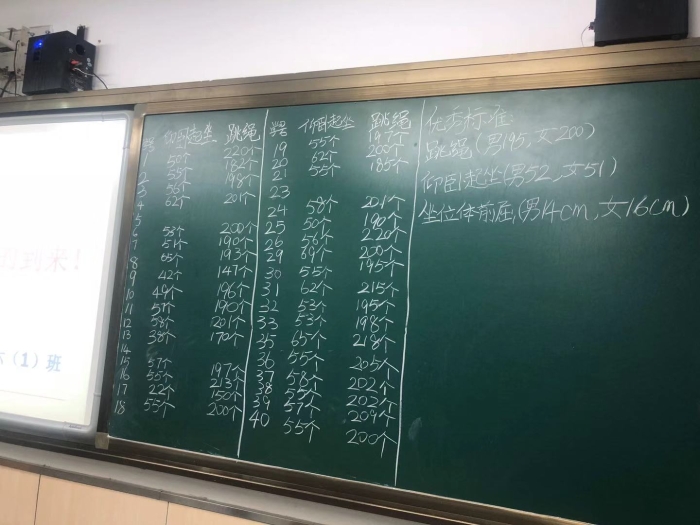 到来！
（1）班
号 仰卧起坐 跳绳
1 50个 220个
2 55个 182个
3 56个 198个
4 62个 201个
5
6 53个 200个
7 51个 190个
8 65个 193个
9 42个 147个
10 49个 196个
11 57个 190个
12 58个 201个
13 38个 170个
14
15 57个 197个
16 55个 213个
17 22个 150个
18 55个 200个
学号 仰卧起坐 跳绳
19 55个 197个
20 62个 200个
21 55个 185个
23
24 58个 201个
25 50个 190个
26 56个 220个
29 69个 200个
30 55个 195个
31 62个 215个
32 53个 195个
33 53个 198个
35 65个 218个
36 55个 205个
37 58个 202个
38 55个 202个
39 57个 209个
40 55个 200个
优秀标准:
跳绳(男195,女200)
仰卧起坐(男52,女51)
坐位体前屈,(男14cm,女16cm)